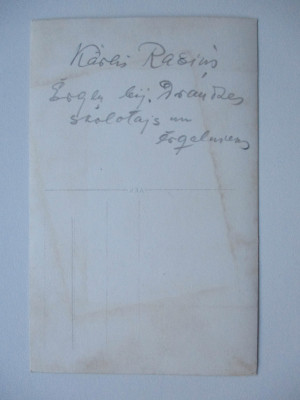 Kārlis Raciņš
Ērgļu bij. Draudzes
skolotājs un
ērģelnieks